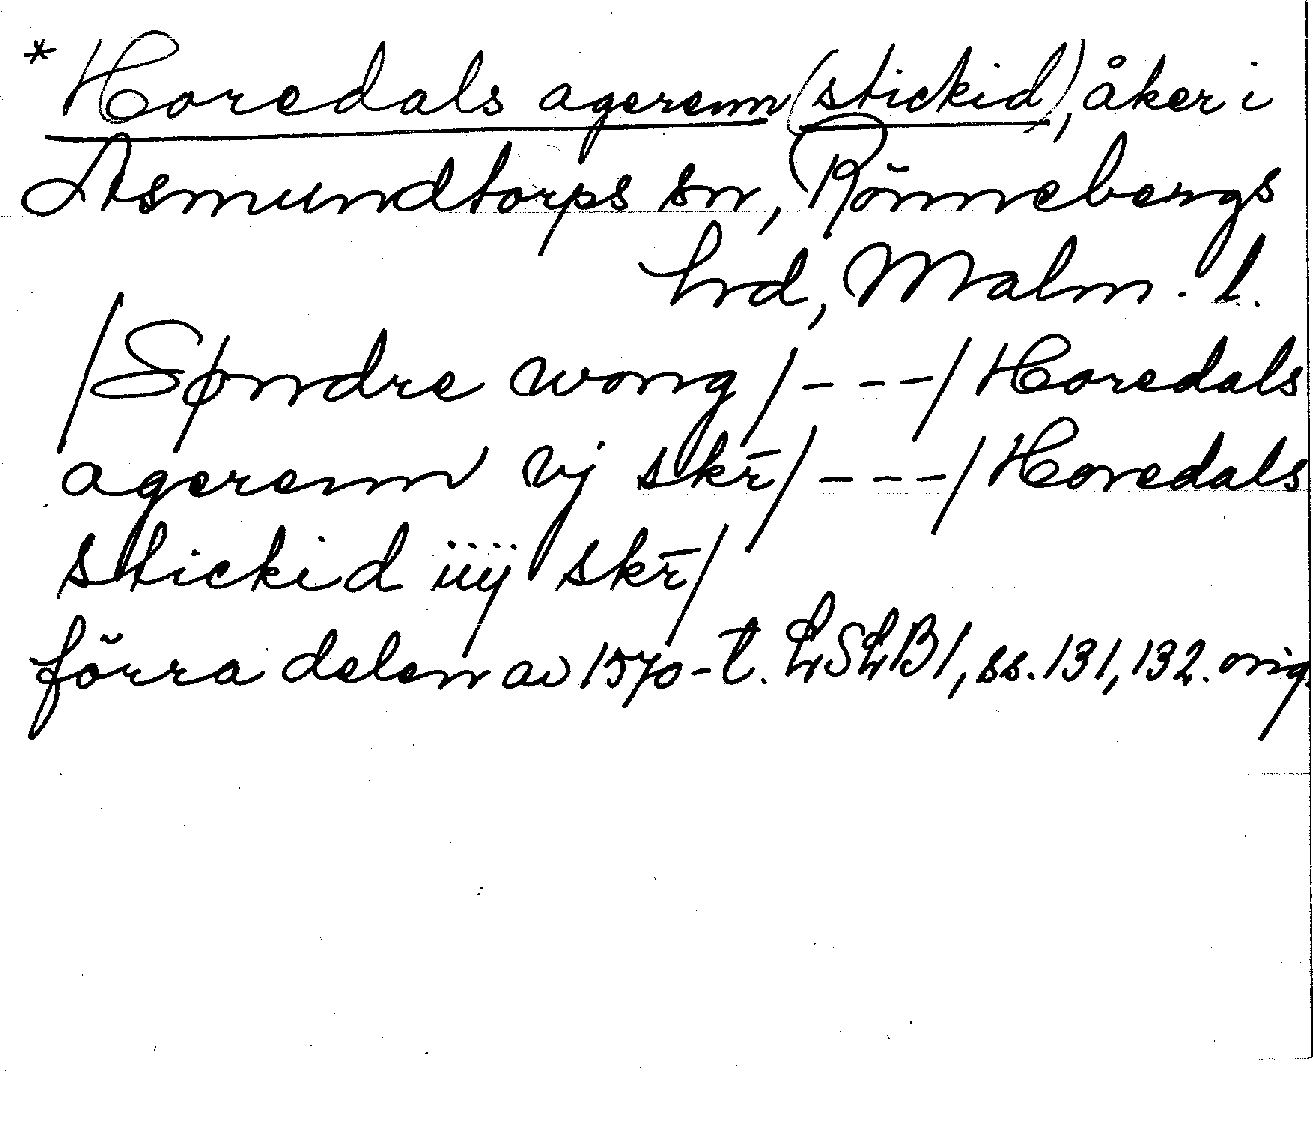 * Horedals agerenn (stickid), åker i
Asmundtorps sn, Rönnebergs
hrd, Malm. l.
/Søndre wong/ --- /Horedals
agerenn vj skr̄/ --- /Horedals
stickid iiij skr̄/
förra delen av 1570-t. LSLB1, ss. 131, 132. orig.